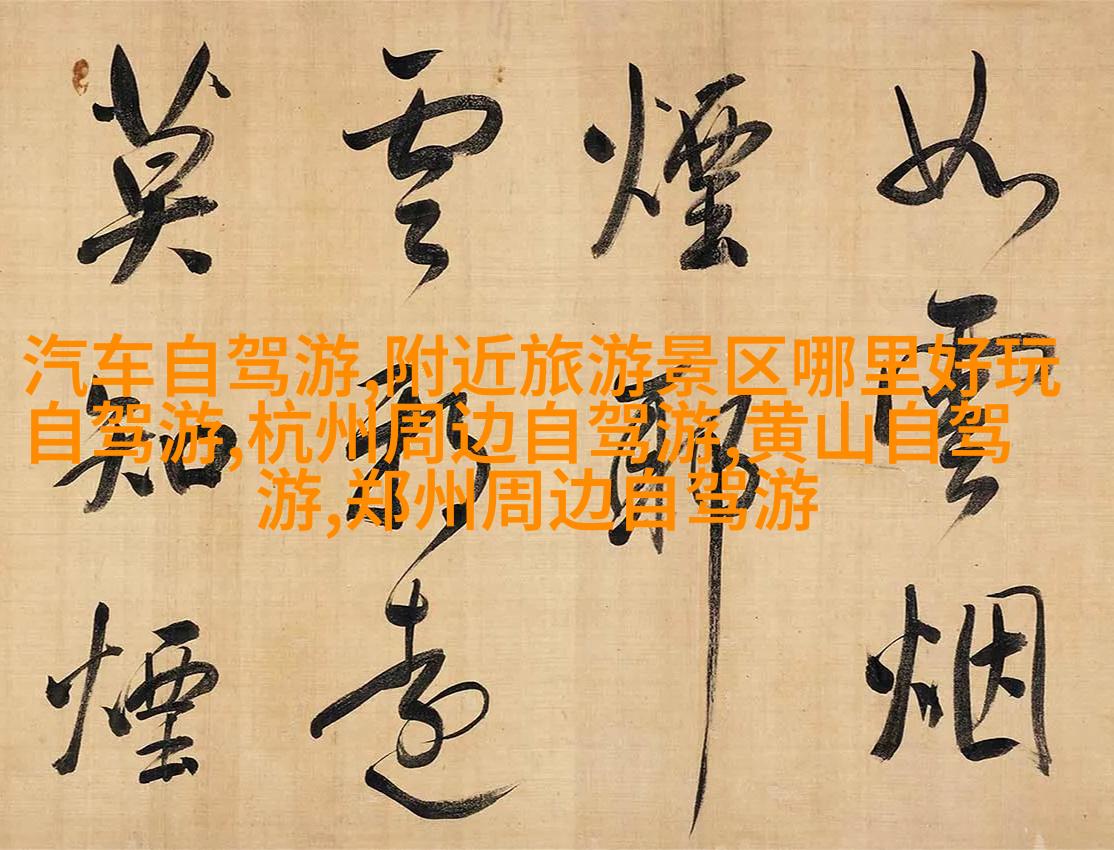 汽车自驾游,附近旅游景区哪里好玩
自驾游,杭州周边自驾游,黄山自驾
游,郑州周边自驾游
如雲烟
煙耶
雲遠
莫知煙